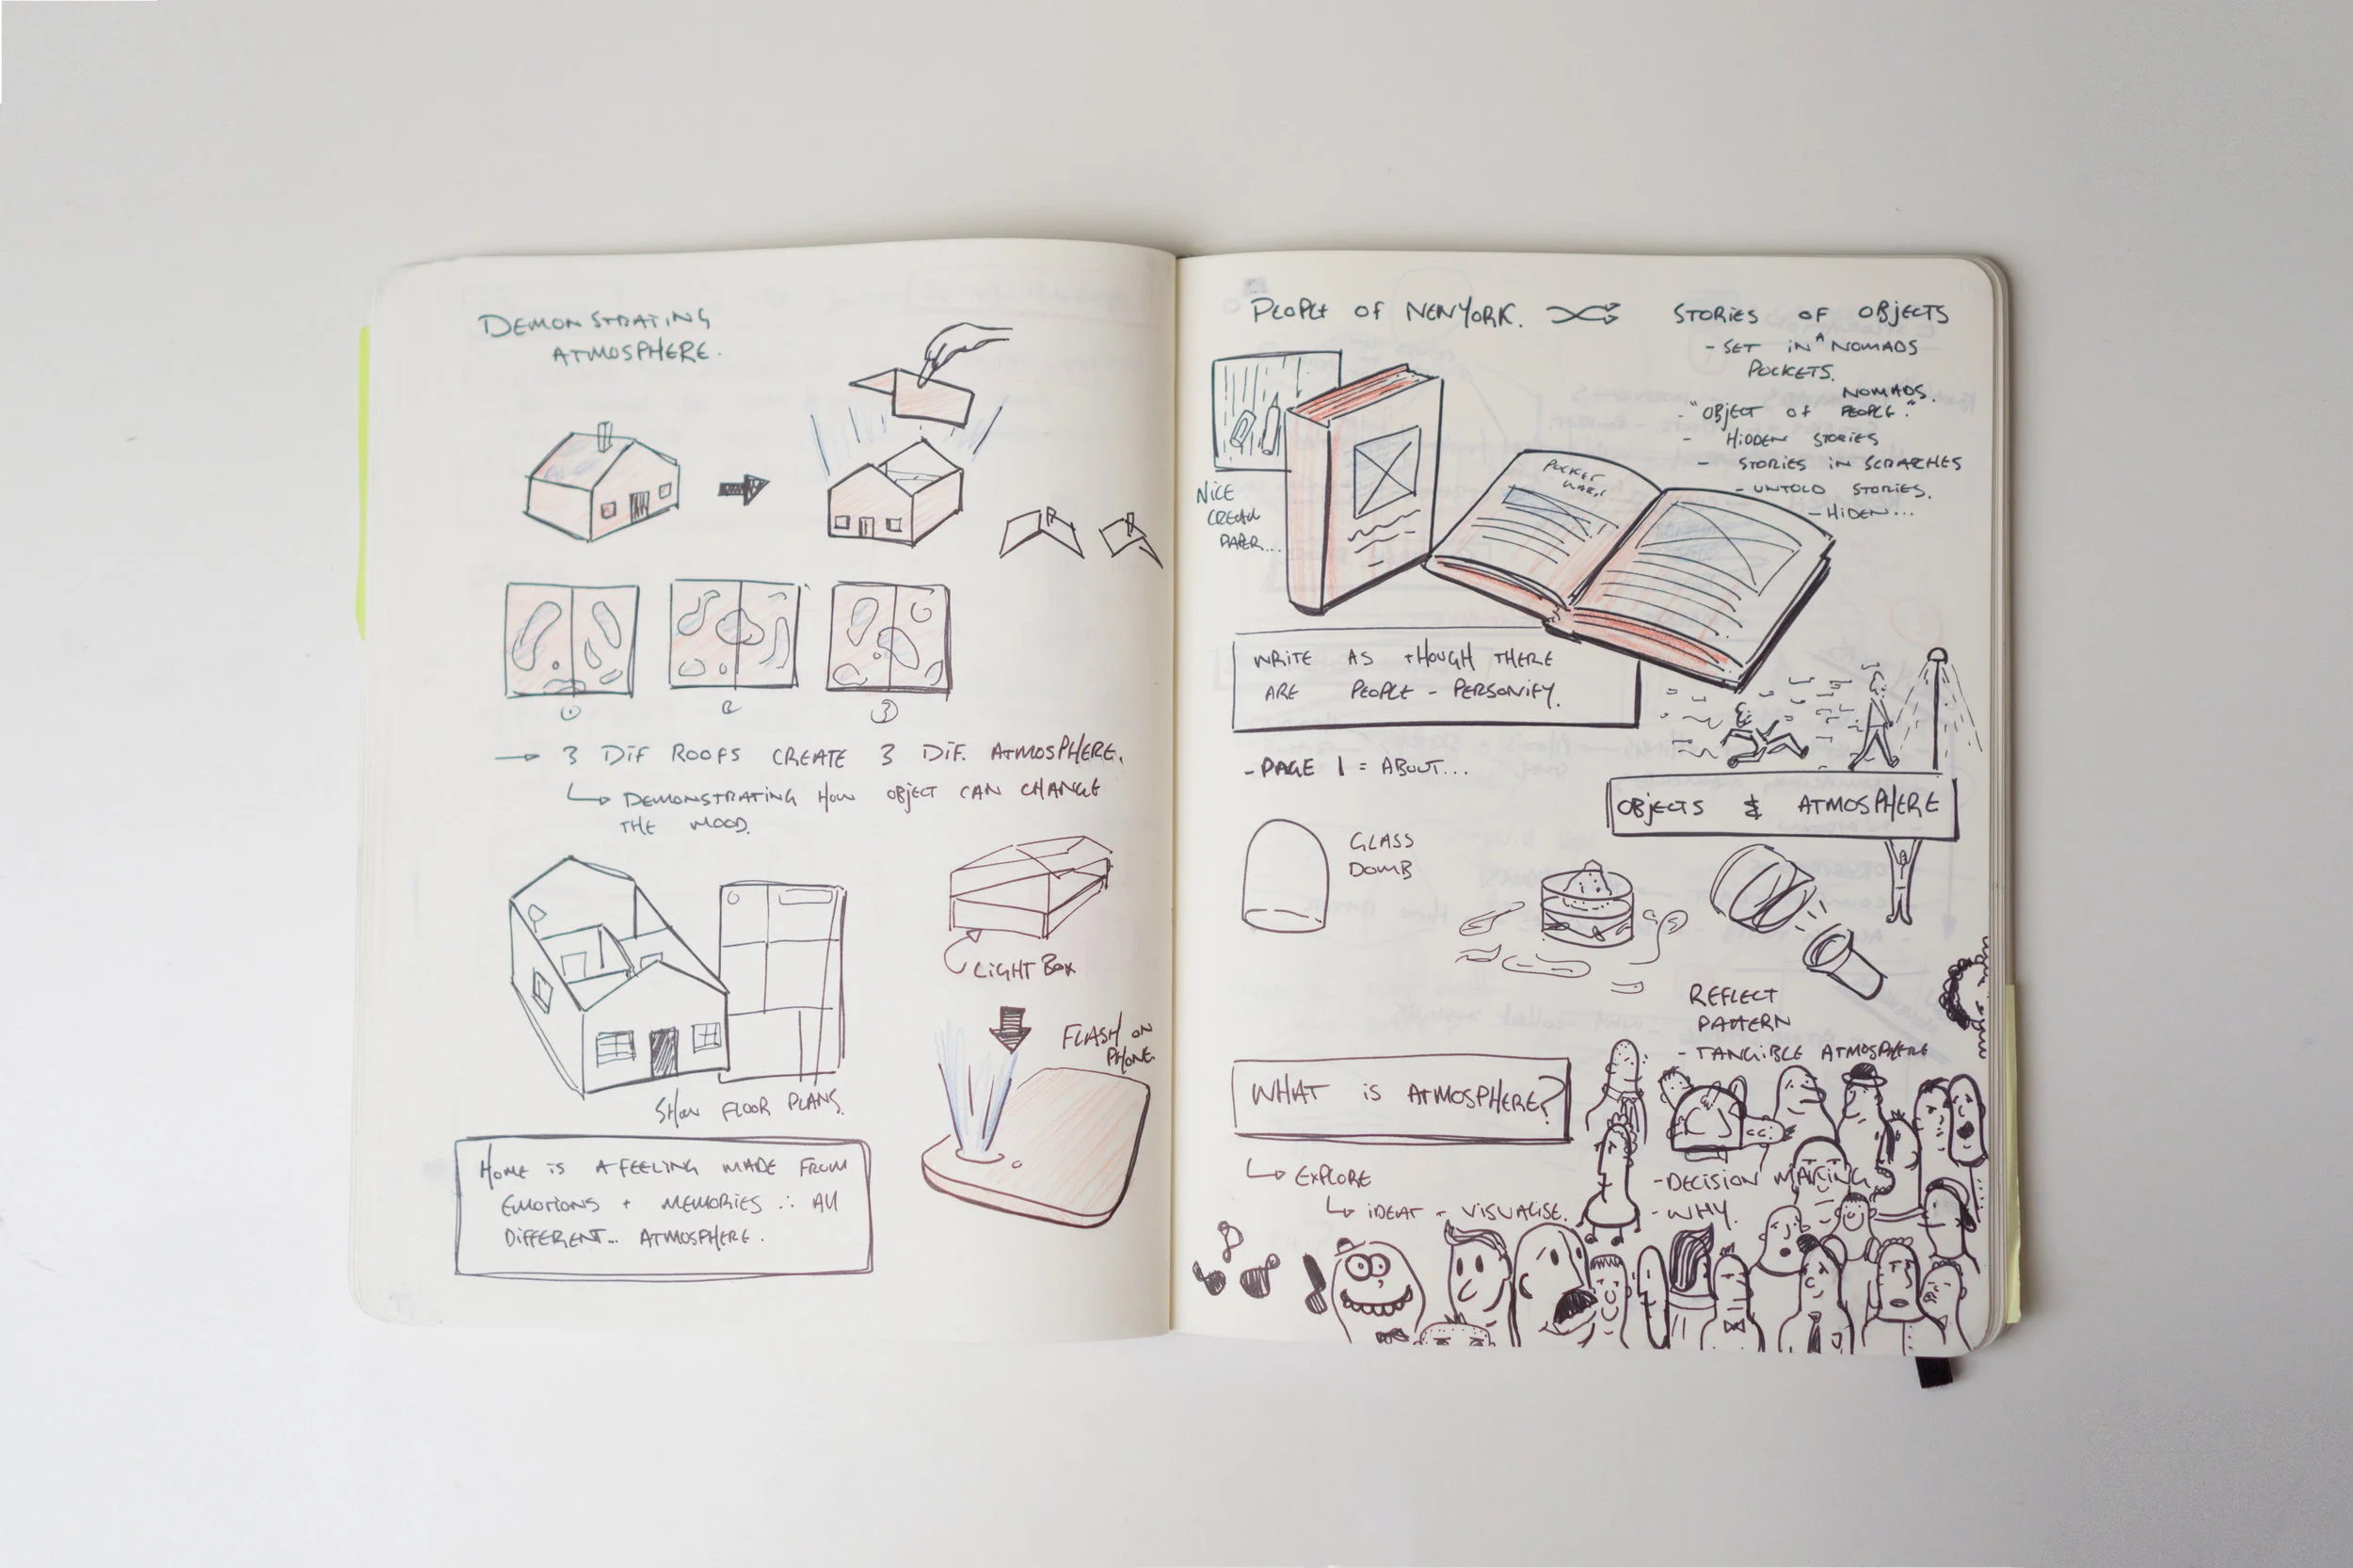 DEMONSTRATING
ATMOSPHERE.
1
2
3
→ 3 DIF ROOFS CREATE 3 DIF. ATMOSPHERE.
↳ DEMONSTRATING HOW OBJECT CAN CHANGE
THE MOOD.
LIGHT BOX
FLASH ON
PHONE.
SHOW FLOOR PLANS.
HOME IS A FEELING MADE FROM
EMOTIONS + MEMORIES ∴ All
DIFFERENT... ATMOSPHERE.
PEOPLE OF NEWYORK.
STORIES OF OBJECTS
- SET IN A NOMADS
POCKETS.
NOMADS.
- "OBJECT OF PEOPLE."
- HIDDEN STORIES
- STORIES IN SCRATCHES
- UNTOLD STORIES.
- HIDEN...
NICE
CREAM
PAPER...
POCKET
WRITE AS THOUGH THERE
ARE PEOPLE - PERSONIFY.
- PAGE 1 = ABOUT...
OBJECTS & ATMOSPHERE
GLASS
DOMB
REFLECT
PATTERN
- TANGIBLE ATMOSPHERE
WHAT IS ATMOSPHERE?
↳ EXPLORE
↳ IDEAT - VISUALISE.
- DECISION MAKING
- WHY.